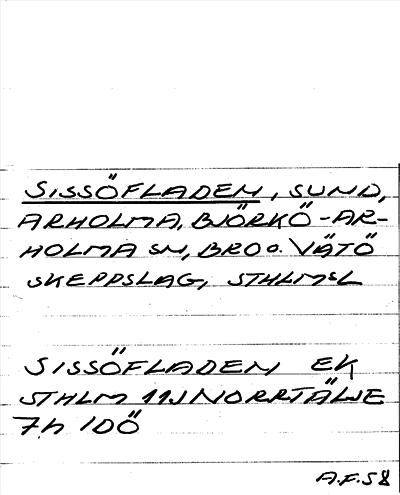 SISSÖFLADEN, SUND,
ARHOLMA, BJÖRKÖ-AR-
HOLMA SN, BRO O. VÄTÖ
SKEPPSLAG, STHLMSL
SISSÖFLADEN EK
STHLM 11J NORRTÄLJE
7h IDÖ
A.F. 58